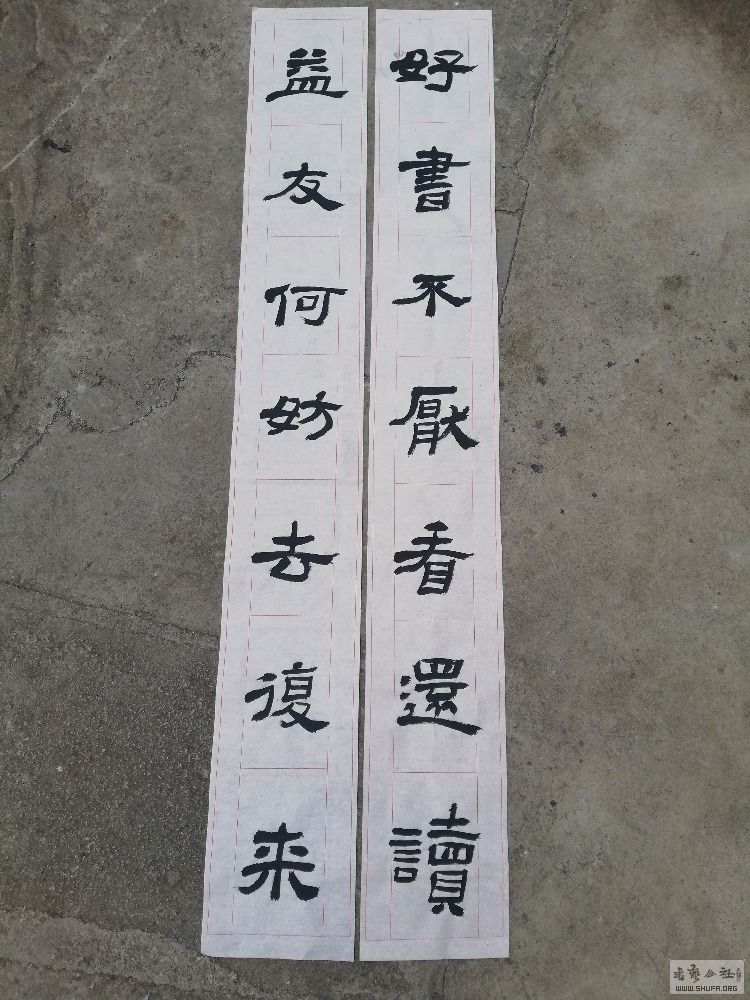 好書不厭看還讀
益友何妨去復来
WWW.SHUFA.ORG